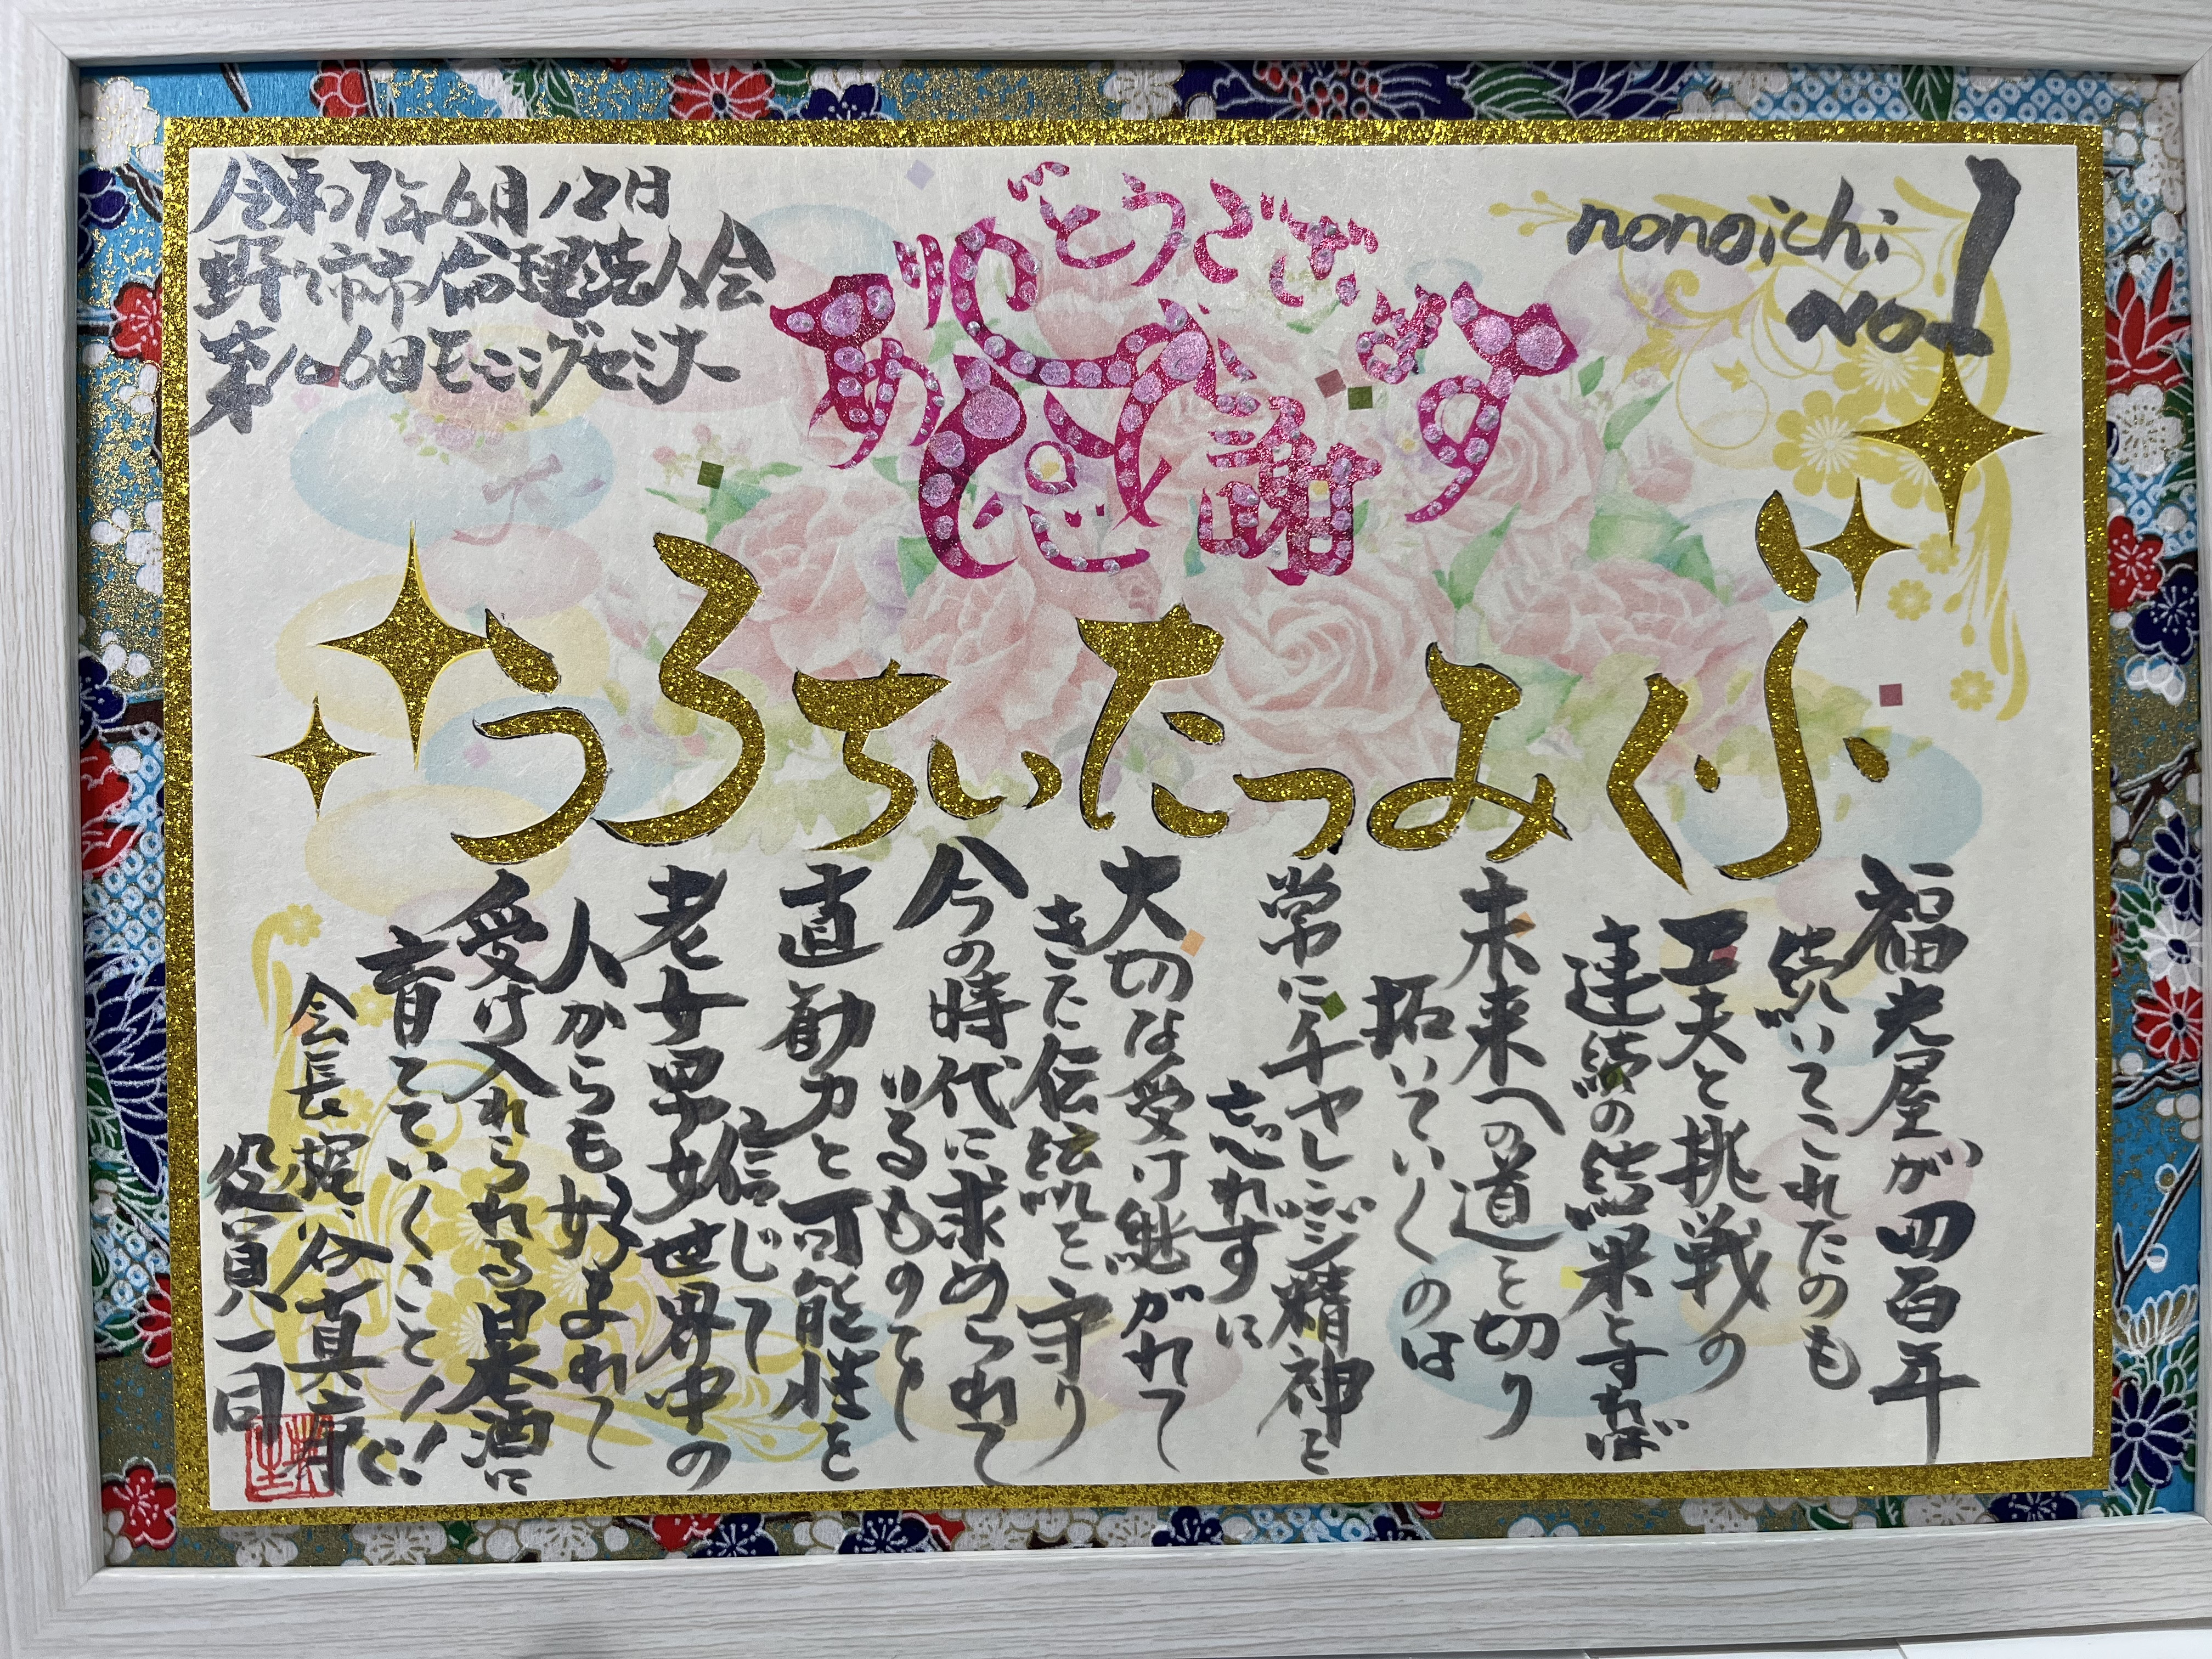 令和7年6月12日
野々市市倫理法人会
モーニングセミナー
ありがとうございます
感謝
nonoichi
No.1
ふくみつたいちろう
福光屋が四百年
続いてこれたのも
工夫と挑戦の
連続の結果とすれば
未来への道を切り
拓いていくのは
常にチャレンジ精神を
忘れずに
大切な受け継がれて
きた伝統を守り
今の時代に求められて
いるものを
直勘力と可能性を
信じて
老女男女世界中の
人からも好まれて
受け入れられる日本酒に
育てていくこと!!
会長 谷真
役員一同